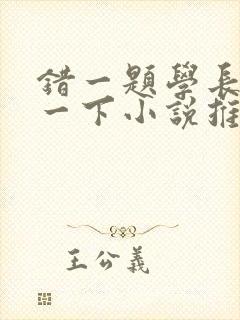 錯一題學長
一下小說推
王公義